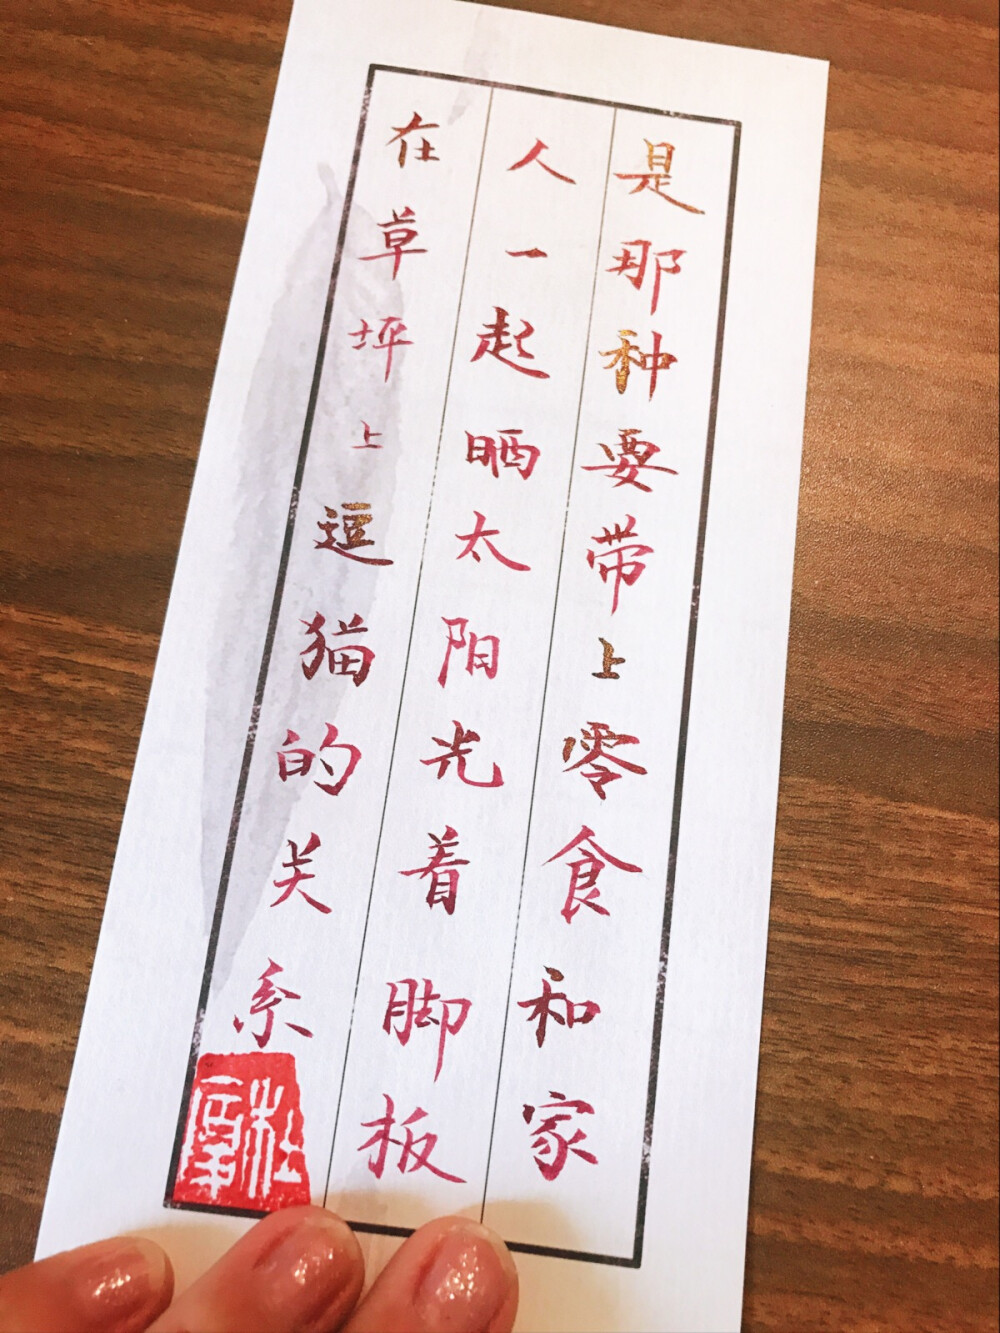 是那种要带上零食和家
人一起晒太阳光着脚板
在草坪上逗猫的关系